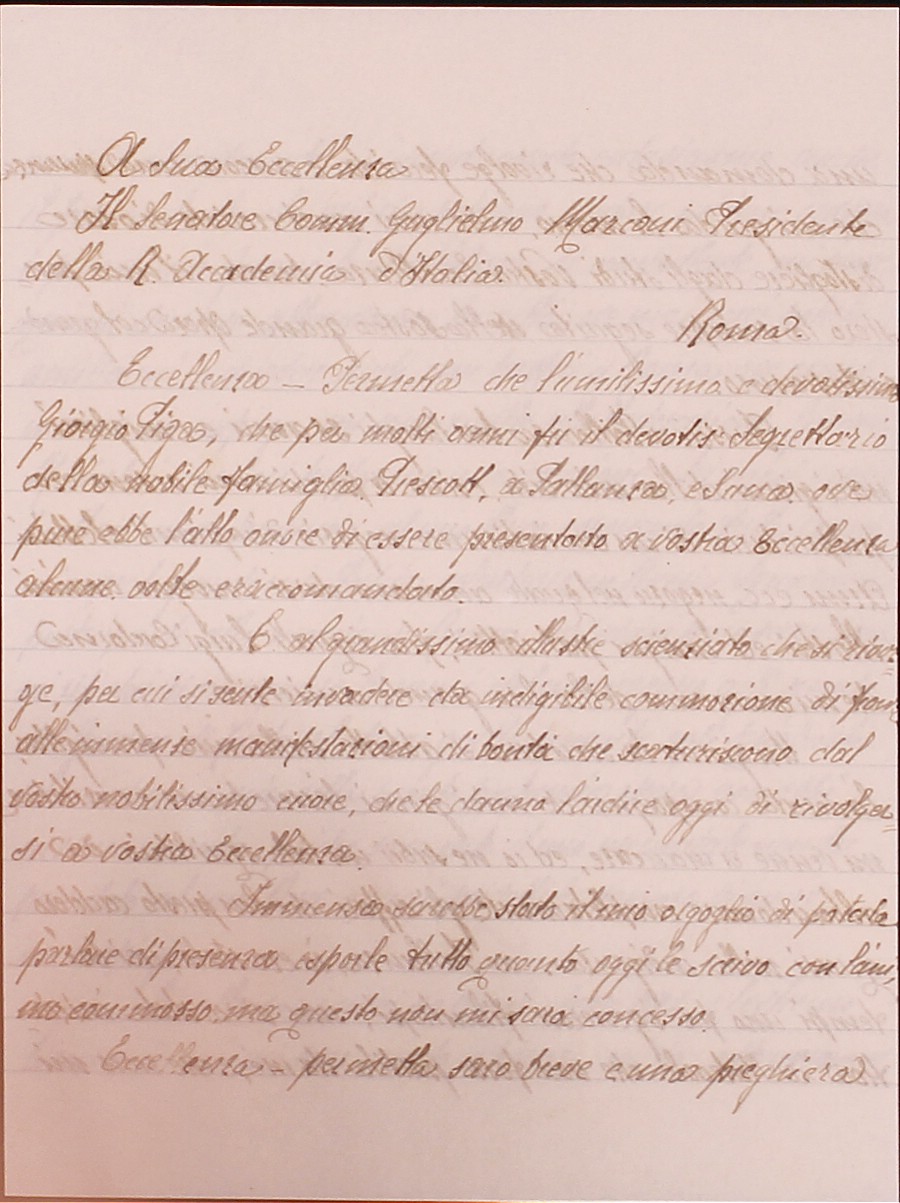 A Sua Eccellenza
Il Senatore Comm. Guglielmo Marconi Presidente
della R. Accademia d'Italia.
Roma.
Eccellenza – Permetta che l'umilissimo e devotissimo
Giorgio Piga, che per molti anni fu il devotis. Segrettario
della nobile famiglia Prescott, a Pallanza, e ove
pure ebbe l'alto onore di essere presentato a vostra Eccellenza
alcune volte e raccomandato.
E al grandissimo illustre scienziato che si rivol=
ge, per cui si sente invadere da indigibile commozione di
alle immense manifestazioni di bontà che scaturiscono dal
vostro nobilissimo cuore, che le danno l'ardire oggi di rivolger=
si a vostra Eccellenza.
Immenso sarebbe stato il mio orgoglio di poterle
parlare di presenza esporle tutto quanto oggi le scrivo con l'ani=
mo commosso, ma questo non mi sarà concesso.
Eccellenza – permetta sarò breve e una preghiera